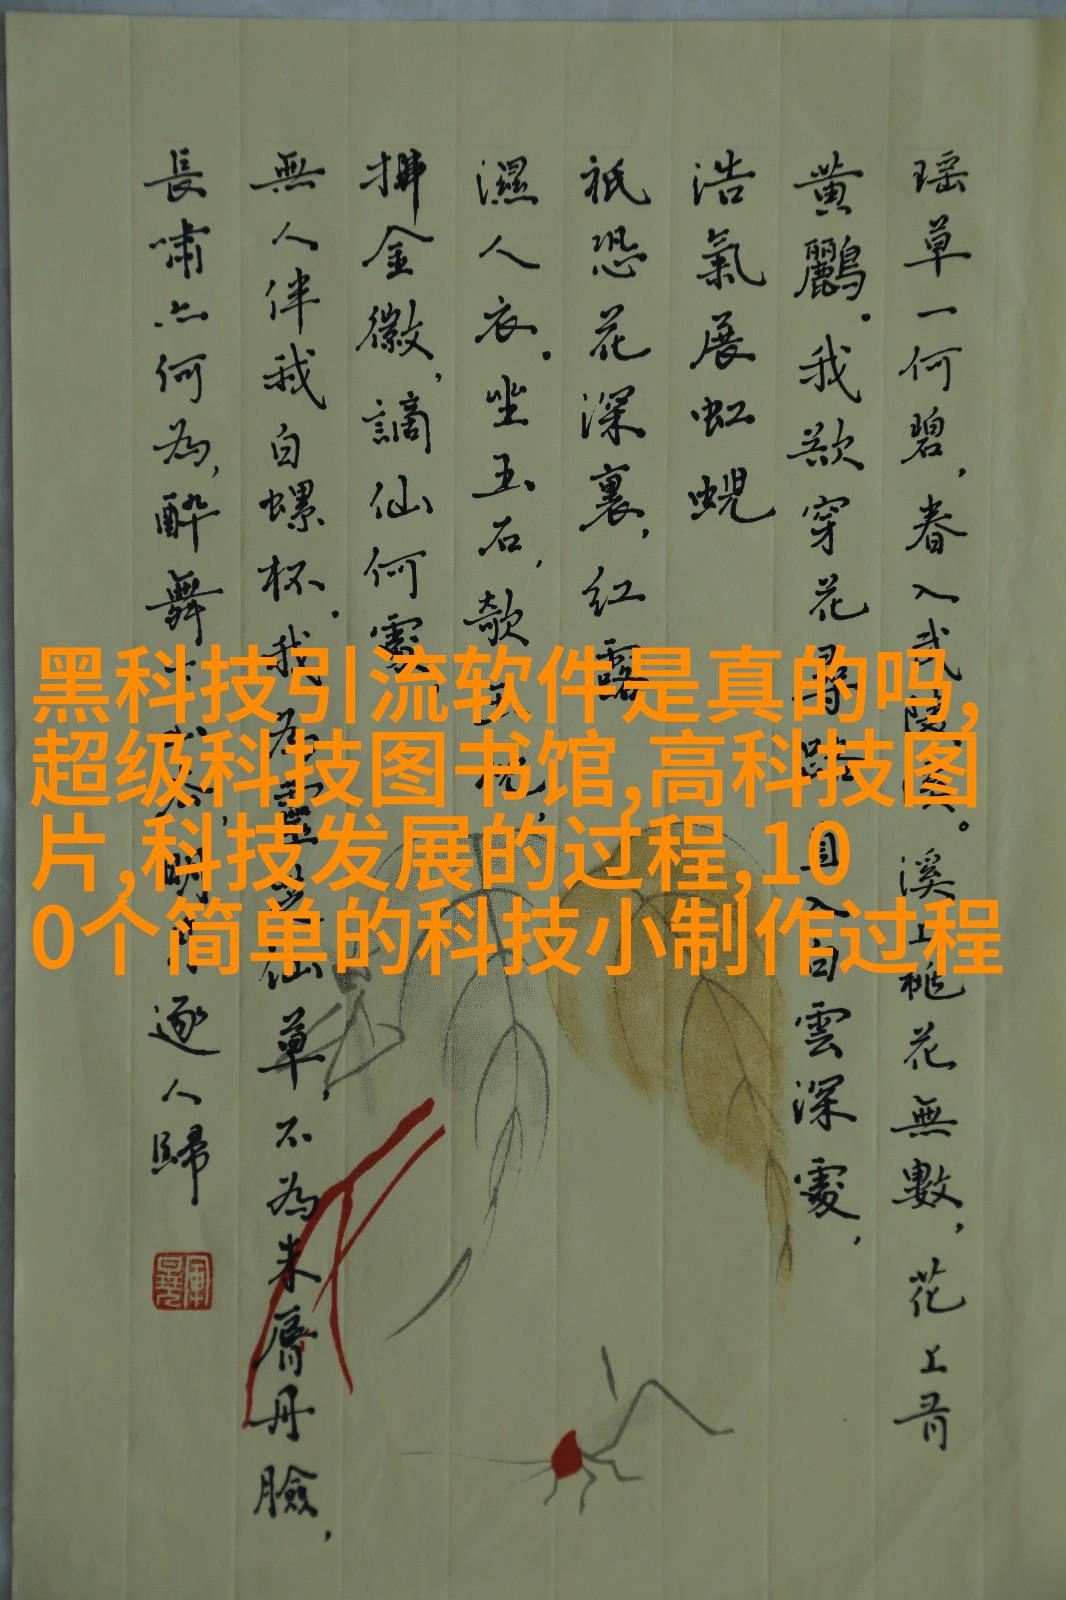 瑶草一何碧，春入武陵溪。溪上桃花無數，花上有
黄鸝。我欲穿花尋路直入白雲深處，
浩氣展虹蜺
祇恐花深裏，紅露
濕人衣。坐玉石，欹玉枕，
拂金徽，謫仙何處，
無人伴我白螺杯。我為靈芝仙草，不為朱脣丹臉，
長嘯亦何為，醉舞下山去，明月逐人歸
黑科技引流软件是真的吗,
超级科技图书馆,高科技图
片,科技发展的过程,10
0个简单的科技小制作过程